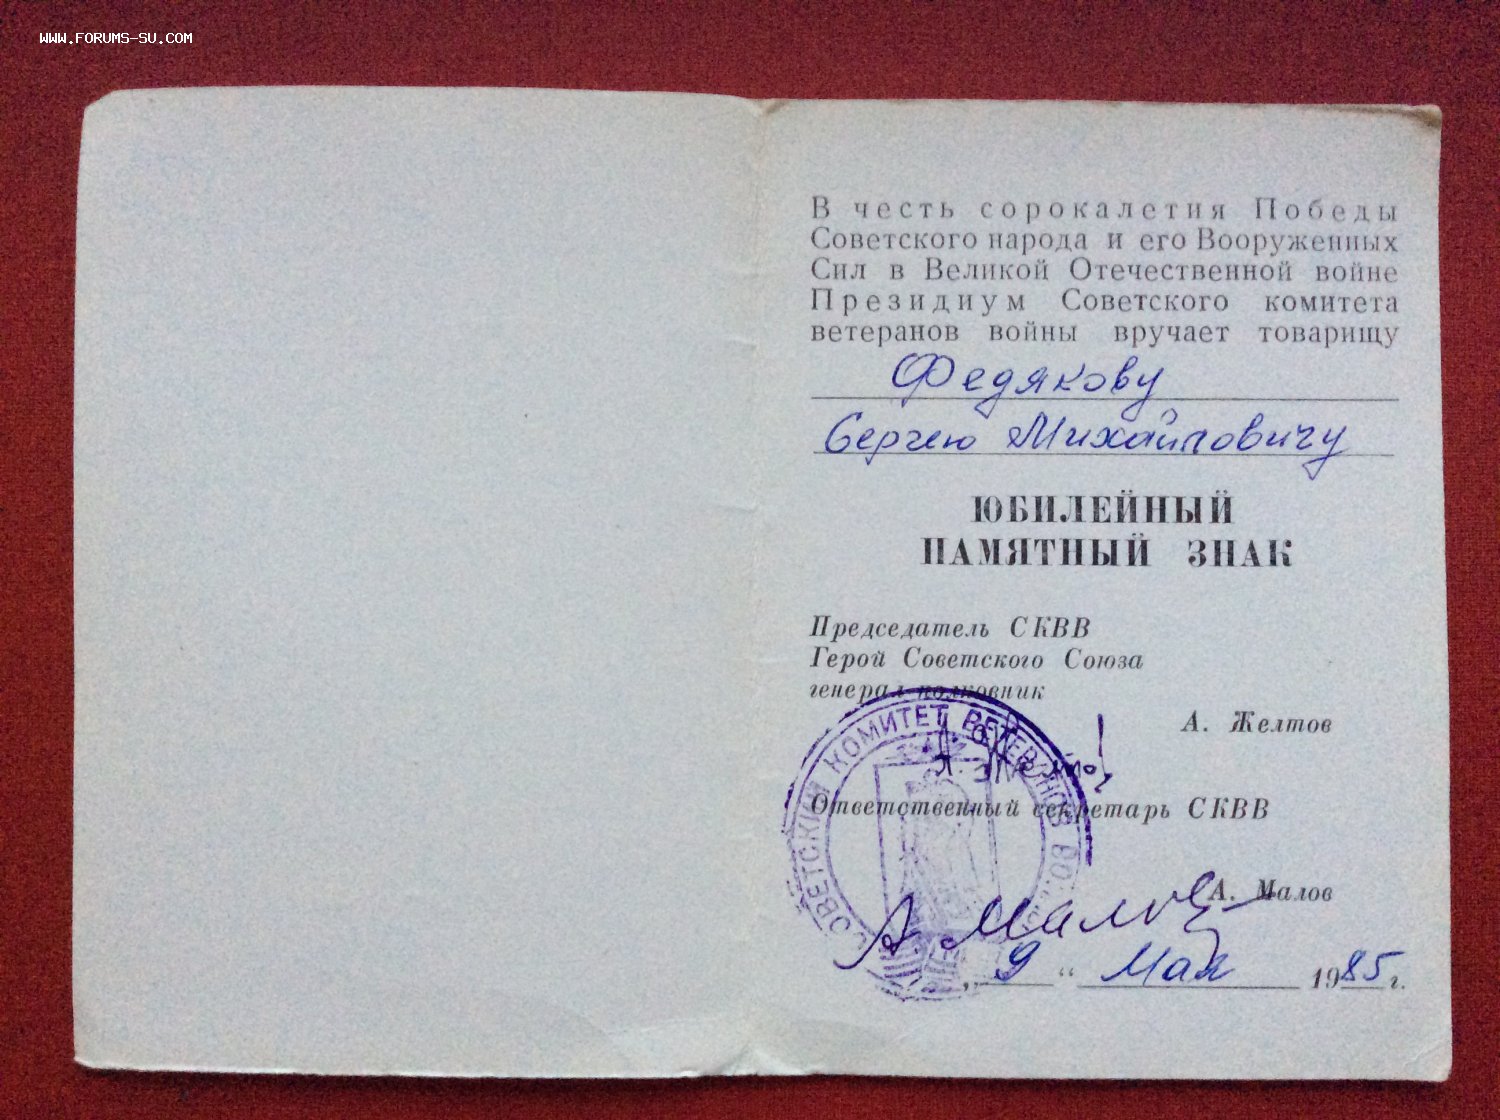 WWW.FORUMS-SU.COM
В честь сорокалетия Победы
Советского народа и его Вооруженных
Сил в Великой Отечественной войне
Президиум Советского комитета
ветеранов войны вручает товарищу
Федякову
Сергею Михайловичу
ЮБИЛЕЙНЫЙ
ПАМЯТНЫЙ ЗНАК
Председатель СКВВ
Герой Советского Союза
генерал-полковник
А. Желтов
СОВЕТСКИЙ КОМИТЕТ ВЕТЕРАНОВ ВОЙНЫ
Ответственный секретарь СКВВ
А. Малов
А. Малов
„9“ Мая 1985 г.